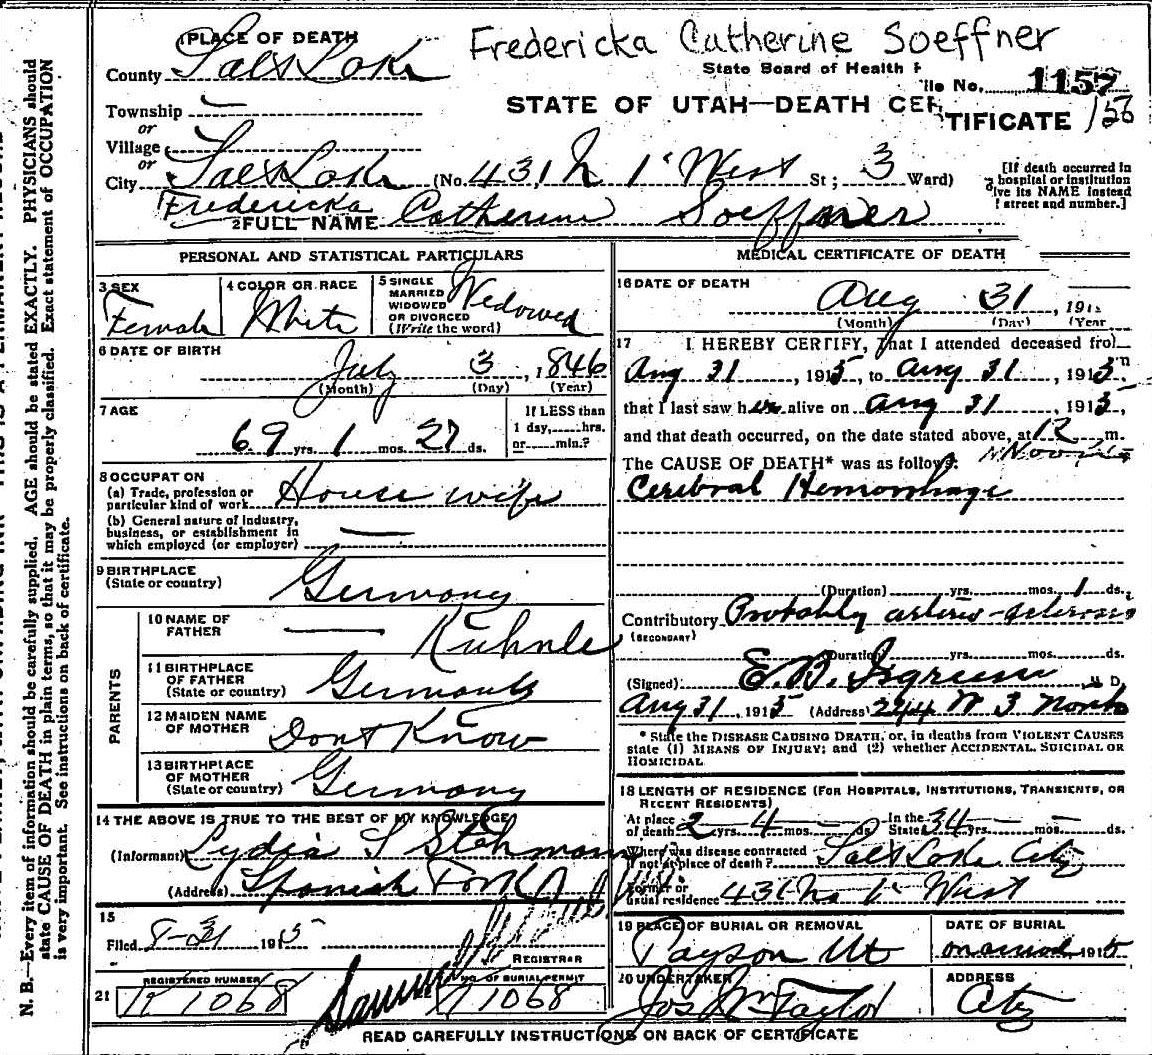 N. B.—Every item of information should be carefully supplied. AGE should be stated EXACTLY. PHYSICIANS should
state CAUSE OF DEATH in plain terms, so that it may be properly classified. Exact statement of OCCUPATION
is very important. See instructions on back of certificate.
Fredericka Catherine Soeffner
1 PLACE OF DEATH
County Salt Lake
State Board of Health
File No. 1157
156
STATE OF UTAH—DEATH CERTIFICATE
Township —
or
Village
or
City Salt Lake (No. 431 N 1 West St; 3 Ward)
[If death occurred in
hospital or institution
give its NAME instead
street and number.]
2 FULL NAME Fredericka Catherine Soeffner
PERSONAL AND STATISTICAL PARTICULARS
3 SEX
Female
4 COLOR OR RACE
White
5 SINGLE
MARRIED
WIDOWED
OR DIVORCED
(Write the word)
Widowed
6 DATE OF BIRTH
July 3, 1846
(Month) (Day) (Year)
7 AGE
69 yrs. 1 mos. 27 ds.
If LESS than
1 day,......hrs.
or......min.?
8 OCCUPATION
(a) Trade, profession or
particular kind of work House wife
(b) General nature of industry,
business, or establishment in
which employed (or employer) —
9 BIRTHPLACE
(State or country) Germany
PARENTS
10 NAME OF
FATHER — Kuhnle
11 BIRTHPLACE
OF FATHER
(State or country) Germany
12 MAIDEN NAME
OF MOTHER Dont Know
13 BIRTHPLACE
OF MOTHER
(State or country) Germany
14 THE ABOVE IS TRUE TO THE BEST OF MY KNOWLEDGE
(Informant) Lydia S
(Address) Spanish Fork
15
Filed 8-31 1915
REGISTRAR
21
REGISTERED NUMBER
1068
NO. OF BURIAL PERMIT
1068
MEDICAL CERTIFICATE OF DEATH
16 DATE OF DEATH
Aug 31, 191
(Month) (Day) (Year
17 I HEREBY CERTIFY, That I attended deceased from
Aug 31, 1915, to Aug 31, 1915
that I last saw her alive on Aug 31, 1915,
and that death occurred, on the date stated above, at 12 m.
The CAUSE OF DEATH* was as follows:
Cerebral Hemorrhage
(Duration) yrs. mos. 1 ds.
Contributory Probably arterio-sclerosis
(SECONDARY)
(Duration) yrs. mos. ds.
(Signed) E. B. M. D.
Aug 31, 1915 (Address) 244 W 3 North
* State the DISEASE CAUSING DEATH, or, in deaths from VIOLENT CAUSES
state (1) MEANS OF INJURY; and (2) whether ACCIDENTAL, SUICIDAL OR
HOMICIDAL.
18 LENGTH OF RESIDENCE (FOR HOSPITALS, INSTITUTIONS, TRANSIENTS, OR
RECENT RESIDENTS)
At place
of death 2 yrs. 4 mos. — ds. In the
State 34 yrs. — mos. — ds.
Where was disease contracted
if not at place of death? Salt Lake City
Former or
usual residence 431 No 1 West
19 PLACE OF BURIAL OR REMOVAL
Payson Ut
DATE OF BURIAL
1915
20 UNDERTAKER
Jos Wm Taylor
ADDRESS
City
READ CAREFULLY INSTRUCTIONS ON BACK OF CERTIFICATE